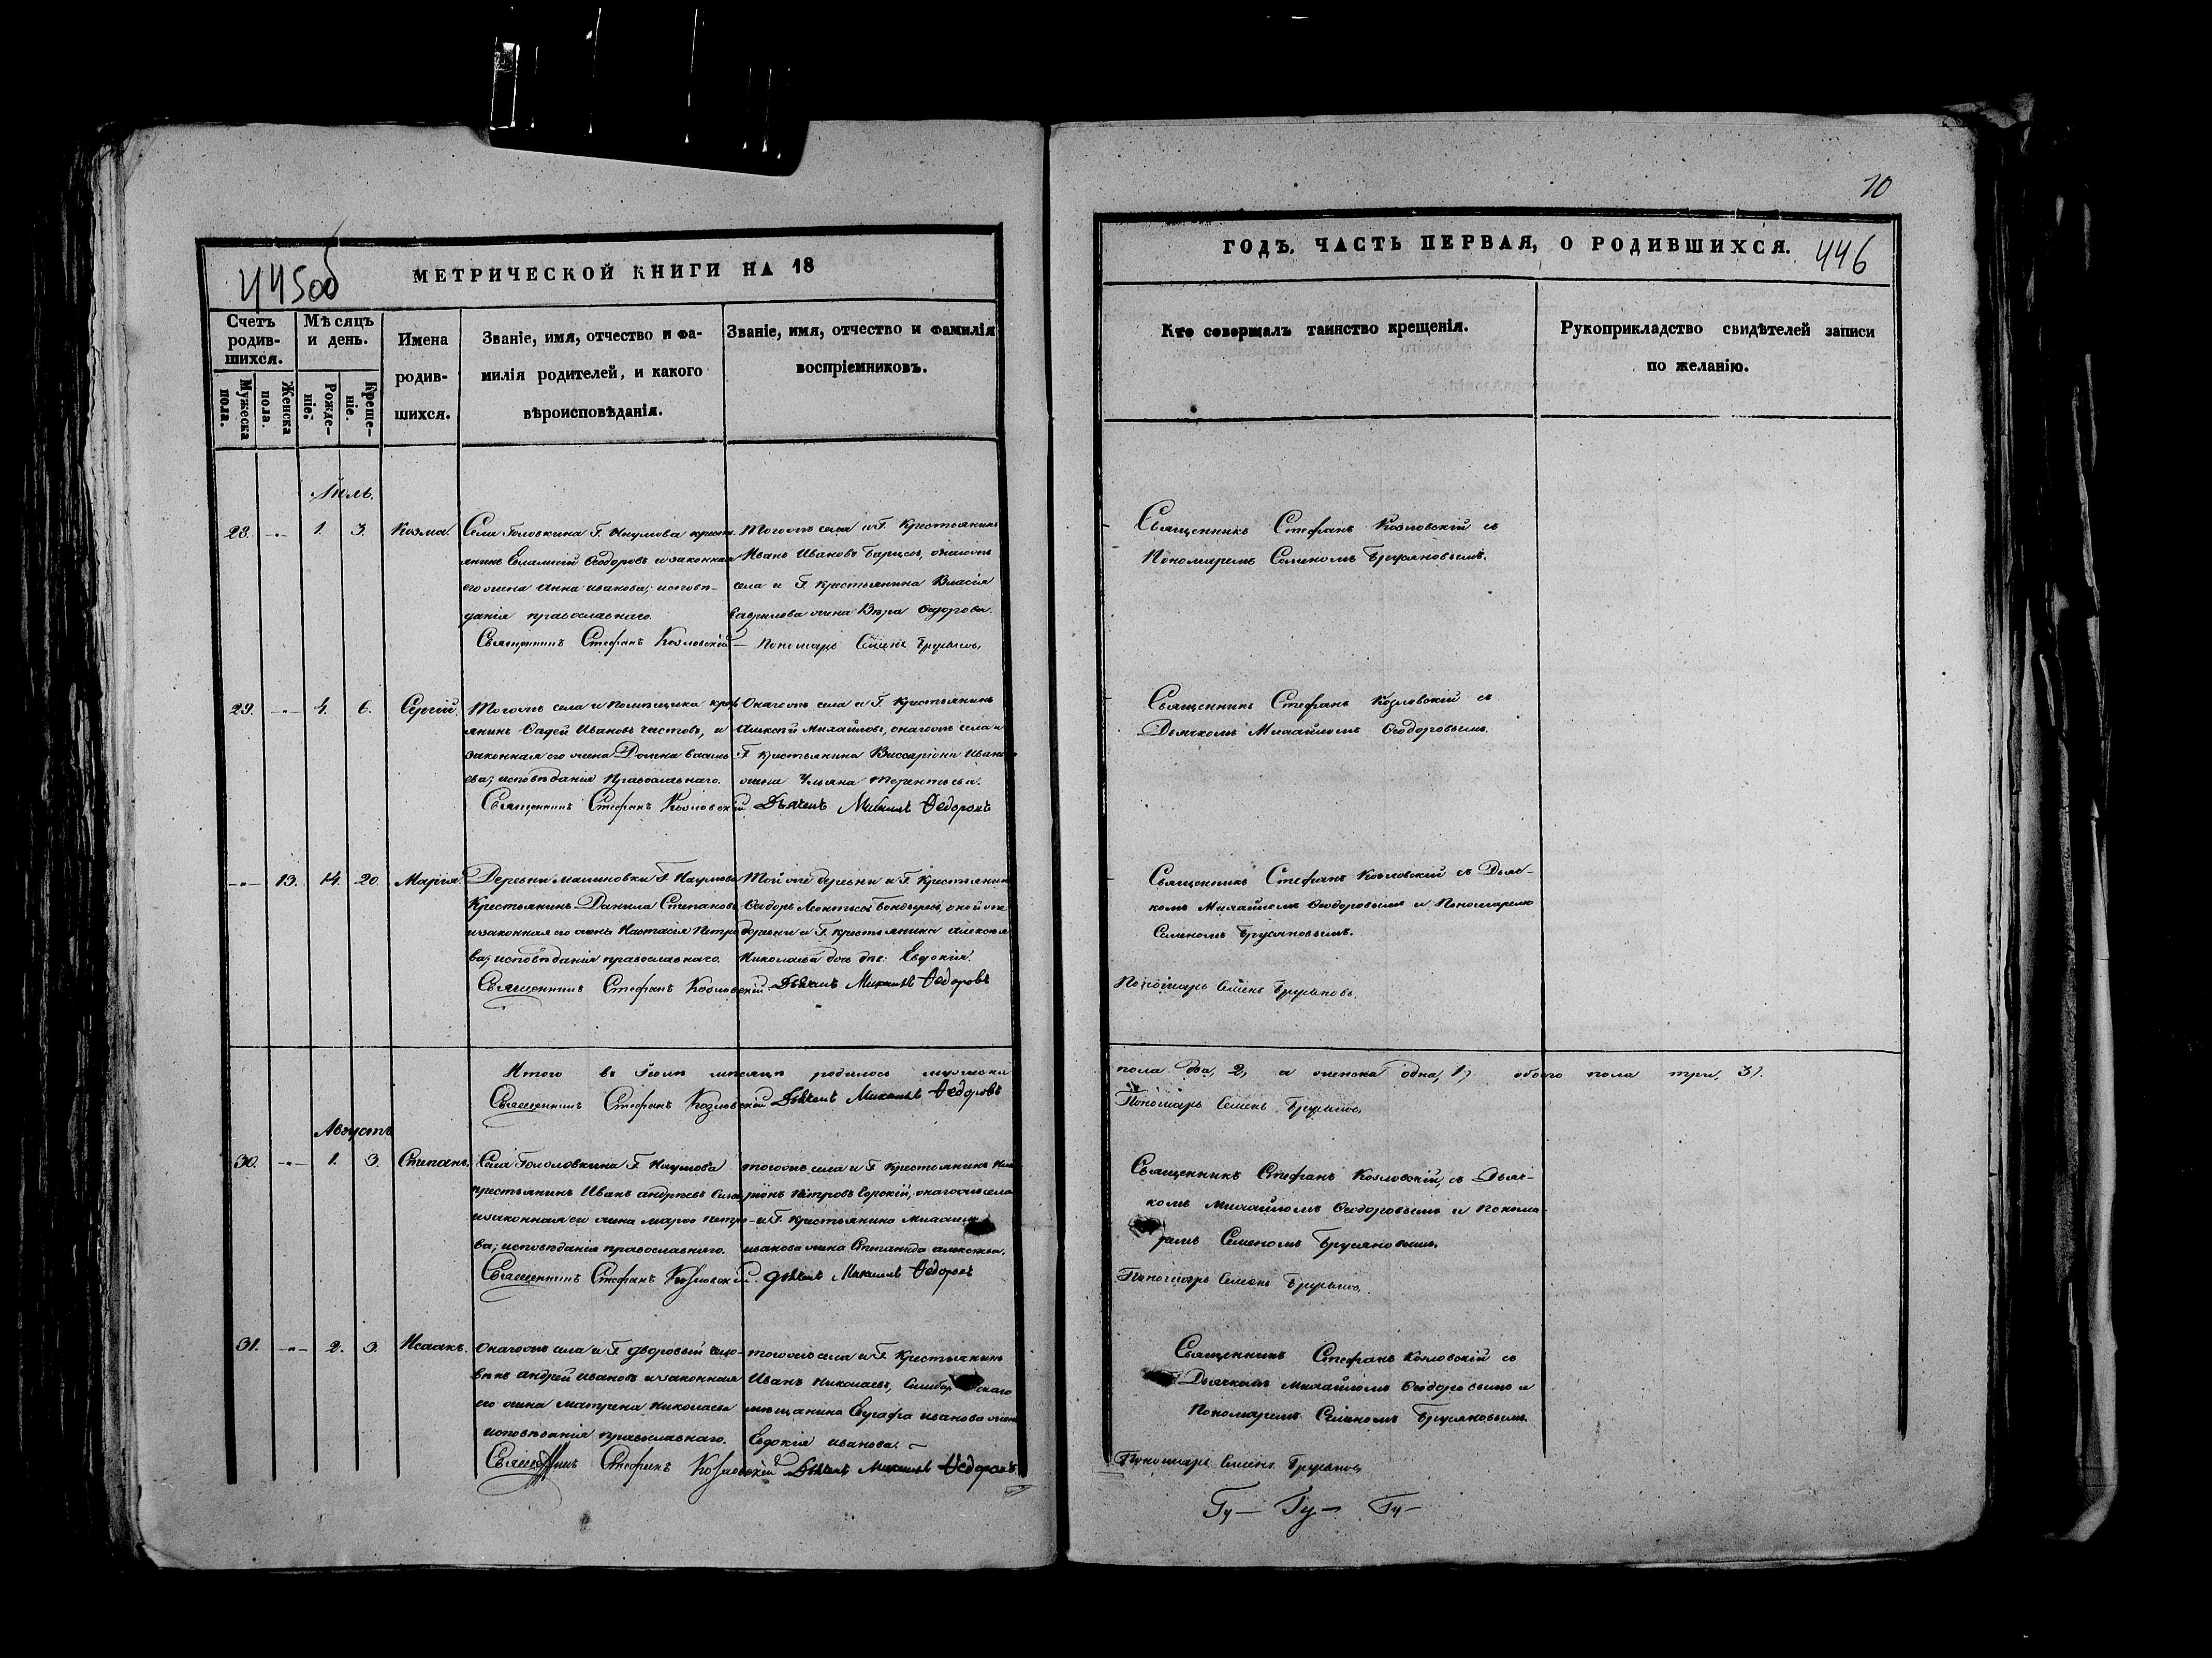 445 об
МЕТРИЧЕСКОЙ КНИГИ НА 18
Счетъ родив-шихся.
Мужеска пола.
Женска пола.
Мѣсяцъ и день.
Рожде-ніе.
Креще-ніе.
Имена родив-шихся.
Званіе, имя, отчество и фа-
милія родителей, и какого
вѣроисповѣданія.
Званіе, имя, отчество и фамилія
воспріемниковъ.
28. -"- 1. 3. Козма.
Села Головкина Г. Наумова кресть
янинъ Евлампій Ѳеодоровъ и законная
его жена Анна иванова; исповѣ-
данія православнаго.
Священникъ Стефанъ Козловскій
Тогожъ села и Г. Крестьянинъ
Иванъ Ивановъ онагожъ
села и Г. Крестьянина Власія
Гаврилова жена Вѣра Ѳедорова.
Пономарь Семенъ Бруяновъ
29. -"- 4. 6. Сергій.
Тогожъ села и помѣщика крест
янинъ Фадей Ивановъ Чистовъ, и
законная его жена Домна василь
ева; исповѣданія Православнаго.
Священникъ Стефанъ Козловскій
Онагожъ села и Г. Крестьянинъ
Алексѣй Михайловъ, онагожъ села и
Г. Крестьянина Виссаріона Иванова
жена Ульяна Терентьева.
Дьячекъ Михаилъ Ѳедоровъ
-"- 13. 14. 20. Марія.
Деревни малиновки Г. Наумова
Крестьянинъ Данила Степановъ
и законная его жена Настасія Петро
ва; исповѣданія православнаго.
Священникъ Стефанъ Козловскій
Той же деревни и Г. Крестьянинъ
Ѳедоръ Леонтьевъ оной же
деревни и Г. крестьянина алексѣя
Николаева дочь дѣв: Евдокія.
Дьячекъ Михаилъ Ѳедоровъ
Итого въ Іюлѣ мѣсяцѣ родилось мужеска
Священникъ Стефанъ Козловскій Дьячекъ Михаилъ Ѳедоровъ
Августъ
30. -"- 1. 3. Степанъ.
Села Головкина Г. Наумова
крестьянинъ Иванъ андреевъ
и законная его жена марѳа петро-
ва; исповѣданія православнаго.
Священникъ Стефанъ Козловскій
тогожъ села и Г. Крестьянинъ
Петровъ онагожъ села
и Г. Крестьянина
иванова жена Степанида алексѣева.
дьячекъ Михаилъ Ѳедоровъ
31. -"- 2. 3. Исаакъ.
Онагожъ села и Г. дворовый чело-
вѣкъ андрей ивановъ и законная
его жена матрена николаева
исповѣданія православнаго.
Священникъ Стефанъ Козловскій
тогожъ села и Г. Крестьянинъ
Иванъ Николаевъ, Симбирскаго
мѣщанина Евграфа иванова жена
Евдокія иванова.
Дьячекъ Михаилъ Ѳедоровъ
10
ГОДЪ. ЧАСТЬ ПЕРВАЯ, О РОДИВШИХСЯ.
446
Кто совершалъ таинство крещенія.
Рукоприкладство свидѣтелей записи
по желанію.
Священникъ Стефанъ Козловскій съ
Пономаремъ Семеномъ Бруяновымъ.
Священникъ Стефанъ Козловскій съ
Дьячкомъ Михайломъ Ѳеодоровымъ.
Священникъ Стефанъ Козловскій съ Дьяч-
комъ Михайломъ Ѳеодоровымъ и Пономаремъ
Семеномъ Бруяновымъ.
Пономарь Семенъ Бруяновъ.
пола два, 2, а женска одна, 1, обоего пола три, 3.
Пономарь Семенъ Бруяновъ
Священникъ Стефанъ Козловскій, съ Дьяч-
комъ Михайломъ Ѳеодоровымъ и Понома-
ремъ Семеномъ Бруяновымъ.
Пономарь Семенъ Бруяновъ
Священникъ Стефанъ Козловскій съ
Дьячкомъ Михайломъ Ѳеодоровымъ и
Пономаремъ Семеномъ Бруяновымъ.
Пономарь Семенъ Бруяновъ